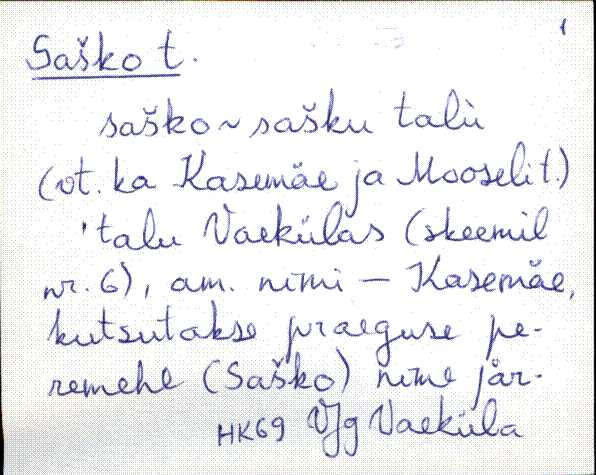 1
Saško t.
saško ~ sašku talù
(vt. ka Kasemäe ja Mooseli t.)
'talu Vaekülas (skeemil
nr. 6), am. nimi – Kasemäe,
kutsutakse praeguse pe-
remehe (Saško) nime jär-
HK69 VJg Vaeküla